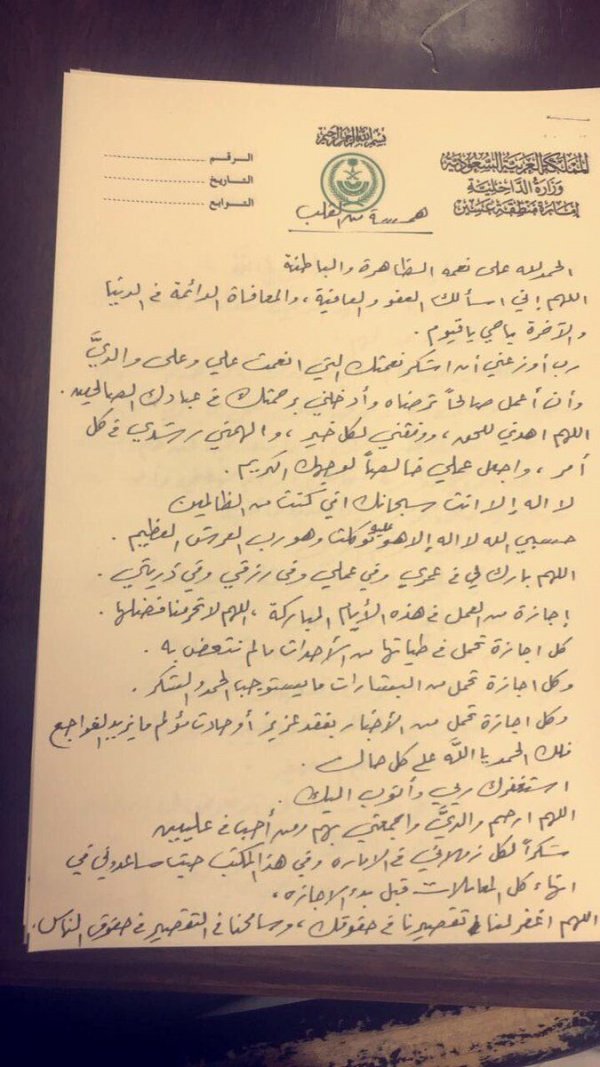 بسم الله الرحمن الرحيم
المملكة العربية السعودية
وزارة الداخلية
إمارة منطقة عسير
الرقم
التاريخ
التوابع
همسة من القلب
الحمد لله على نعمه الظاهرة والباطنة
اللهم إني اسألك العفو والعافية، والمعافاة الدائمة في الدنيا
والآخرة ياحي ياقيوم .
رب أوزعني أن اشكر نعمتك التي انعمت علي وعلى والديَّ
وأن أعمل صالحاً ترضاه وأدخلني برحمتك في عبادك الصالحين .
اللهم اهدني للحق، ووفقني لكل خير، والهمني رشدي في كل
أمر، واجعل عملي خالصاً لوجهك الكريم .
لا اله إلا انت سبحانك اني كنت من الظالمين
حسبي الله لا اله إلا هو عليه توكلت وهو رب العرش العظيم .
اللهم بارك لي في عمري وفي عملي وفي رزقي وفي ذريتي .
إجازة من العمل في هذه الأيام المباركة، اللهم لا تحرمنا فضلها .
كل اجازة تحمل في طياتها من الأحداث مالم نتعض به .
وكل اجازة تحمل من البشارات مايستوجب الحمد والشكر .
وكل اجازة تحمل من الأخبار بفقد عزيز أو حادث مؤلم مايزيد الفواجع
فلك الحمد يا اللَّه على كل حال .
استغفرك ربي وأتوب اليك .
اللهم ارحم والديَّ واجمعني بهم ومن أحب في عليين
شكراً لكل زملائي في الاماره وفي هذا المكتب حيث ساعدوني في
انهاء كل المعاملات قبل بدء الاجازه .
اللهم اغفر لنا تقصيرنا في حقوقك، وسامحنا في التقصير في حقوق الناس .